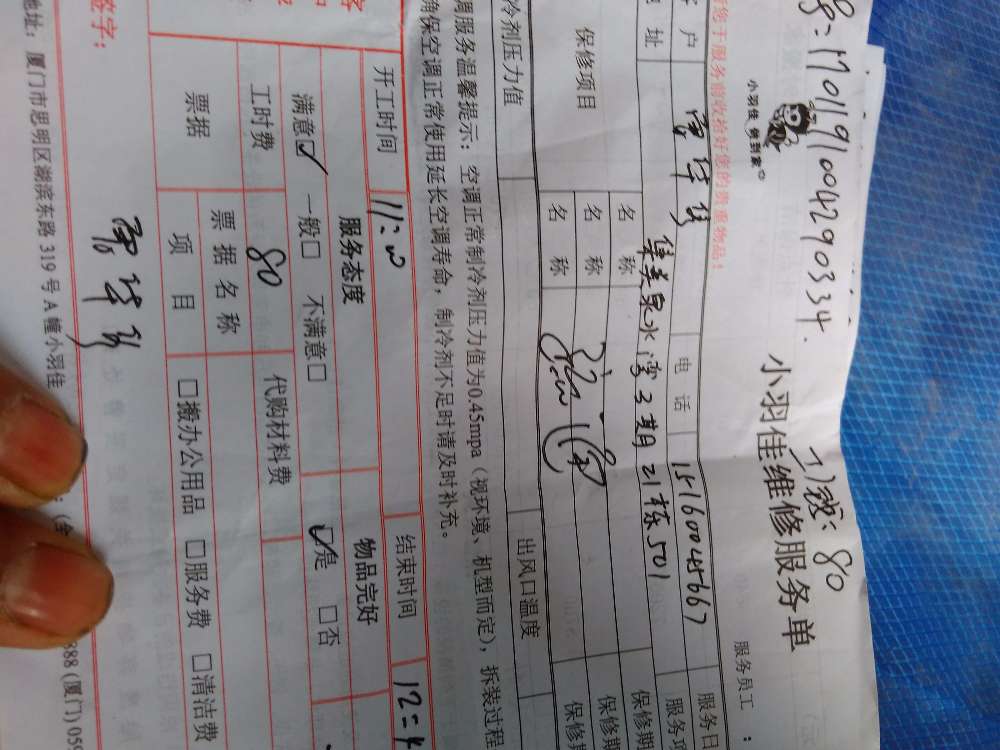 号：1701191004290334
刀锬：80
小羽佳 修到家
小羽佳维修服务单
服务员工：
于服务前收拾好您的贵重物品！
户 电话 15160045667 服务日
址 集美泉水湾3期21栋501 服务项
保修项目 名称 保修期
名称 保修期
名称 保修期
冷剂压力值 出风口温度
调服务温馨提示：空调正常制冷剂压力值为0.45mpa（视环境、机型而定），拆装过程
确保空调正常使用延长空调寿命，制冷剂不足时请及时补充。
开工时间 11:20 结束时间 12:4
服务态度 物品完好
满意☑ 一般□ 不满意□ ☑是 □否
工时费 80 代购材料费
票据 票据名称
项目 □搬办公用品 □服务费 □清洁费
签字：
地址：厦门市思明区湖滨东路319号A幢小羽佳
888 (厦门) 059